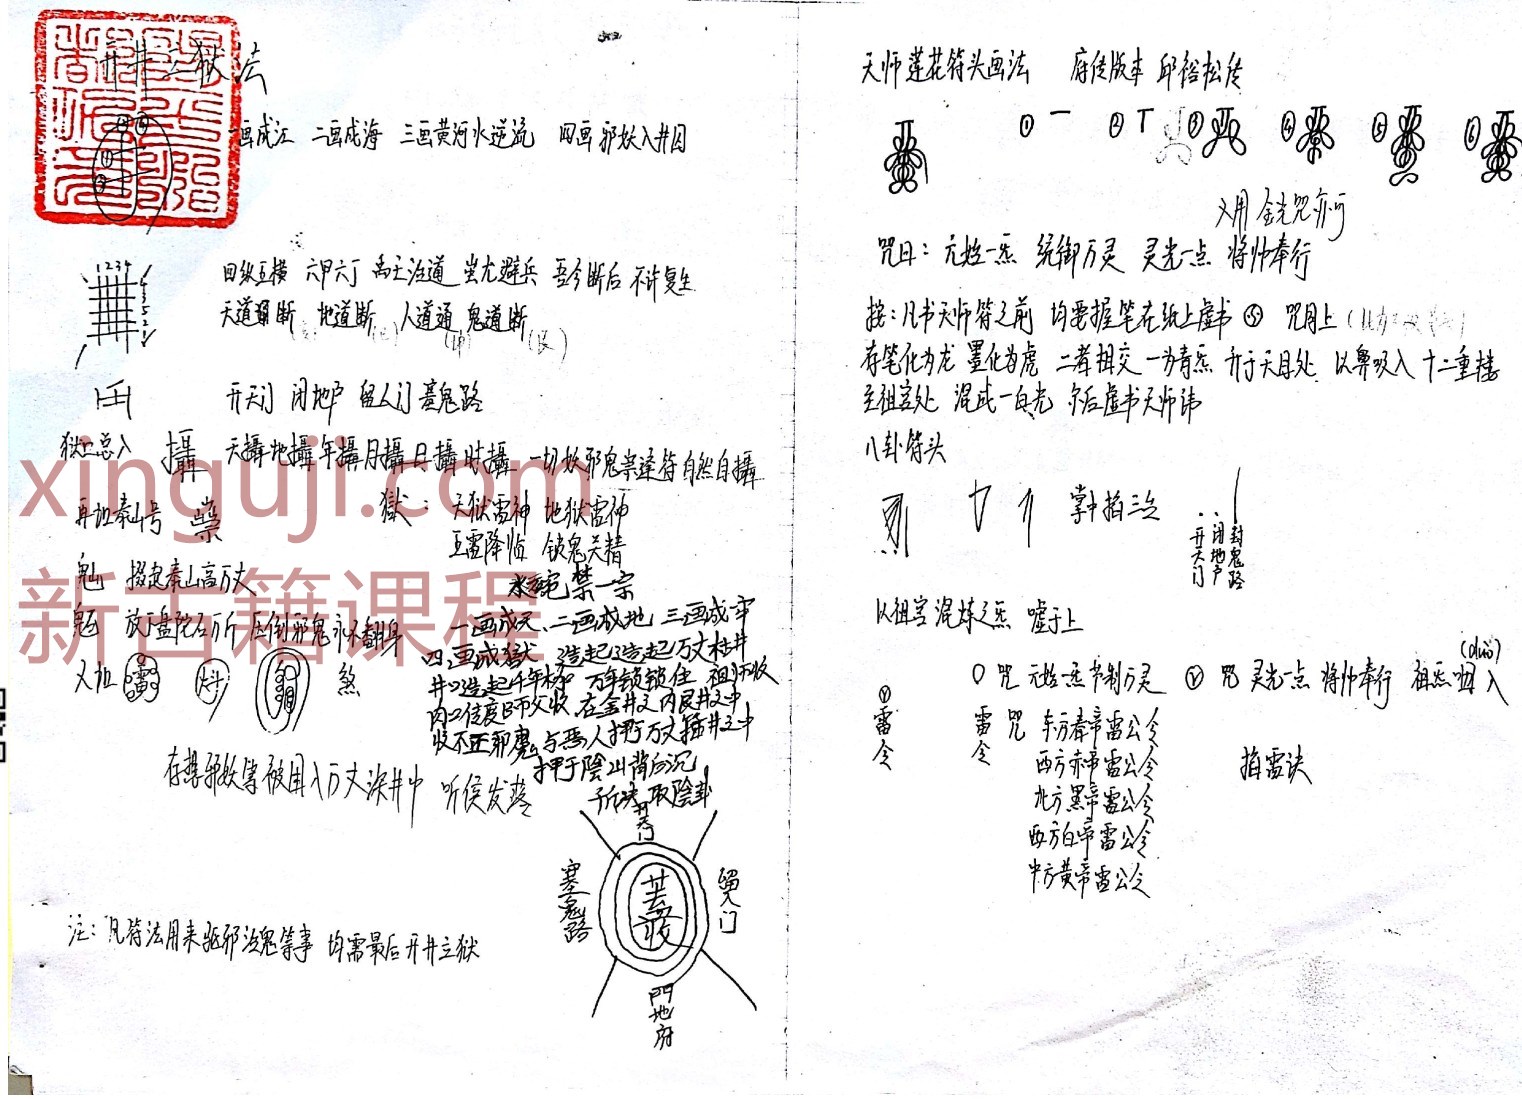 开井立狱法
一画成江 二画成海 三画黄河水逆流 四画邪妖入井囚
1 2 3 4
四纵五横 六甲六丁 禹王治道 蚩尤避兵 吾今断后 不许复生
天道 断 地道断 人道通 鬼道断
开天门 闭地户 留人门 塞鬼路
狱上总入 攝 天攝地攝年攝月攝日攝时攝 一切妖邪鬼祟逢符自然自攝
再加泰山号 獄：天狱雷神 地狱雷神
五雷降临 锁鬼关精
魁 撮起泰山高万丈
放下盘陀石万斤 压倒邪鬼永不翻身
又加 煞
禁一宗
一画成天、二画成地 三画成牢
四画成獄 造起造起万丈枯井
井口造起千年 万年锁锁住 祖师收
收不正邪魔 与恶人押于万丈 井之中
押于陰山背后沉
取陰卦
存想邪妖等被困入万丈深井中 听侯发落
开天门
塞鬼路
留人门
收
地府
注：凡符法用来驱邪治鬼等事 均需最后开井立狱
天师莲花符头画法 府传版本 邱裕松传
① ② ③ ④ ⑤ ⑥
又用金光咒亦可
咒曰：元始一炁 统御万灵 灵光一点 将帅奉行
按：凡书天师符之前 均要握笔在纸上虚书 咒同上
存笔化为龙 墨化为虎 二者相交 一为青炁 升于天目处 以鼻吸入 十二重楼
至祖宫处 混成一白光 尔后虚书天师讳
八卦符头
掌中掐三次
开天门
闭地户
封鬼路
以祖宫混炼之炁 嘘于上
咒 元始一炁 节制万灵 咒 灵光一点 将帅奉行 祖炁 入
雷令
雷令
咒 东方青帝雷公令
西方赤帝雷公令
北方黑帝雷公令
西方白帝雷公令
中方黄帝雷公令
掐雷诀
xinguji.com
新古籍课程